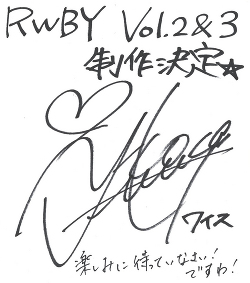 RWBY Vol.2&3
制作決定☆
ワイス
楽しみに待っていなさい!
ですわ!